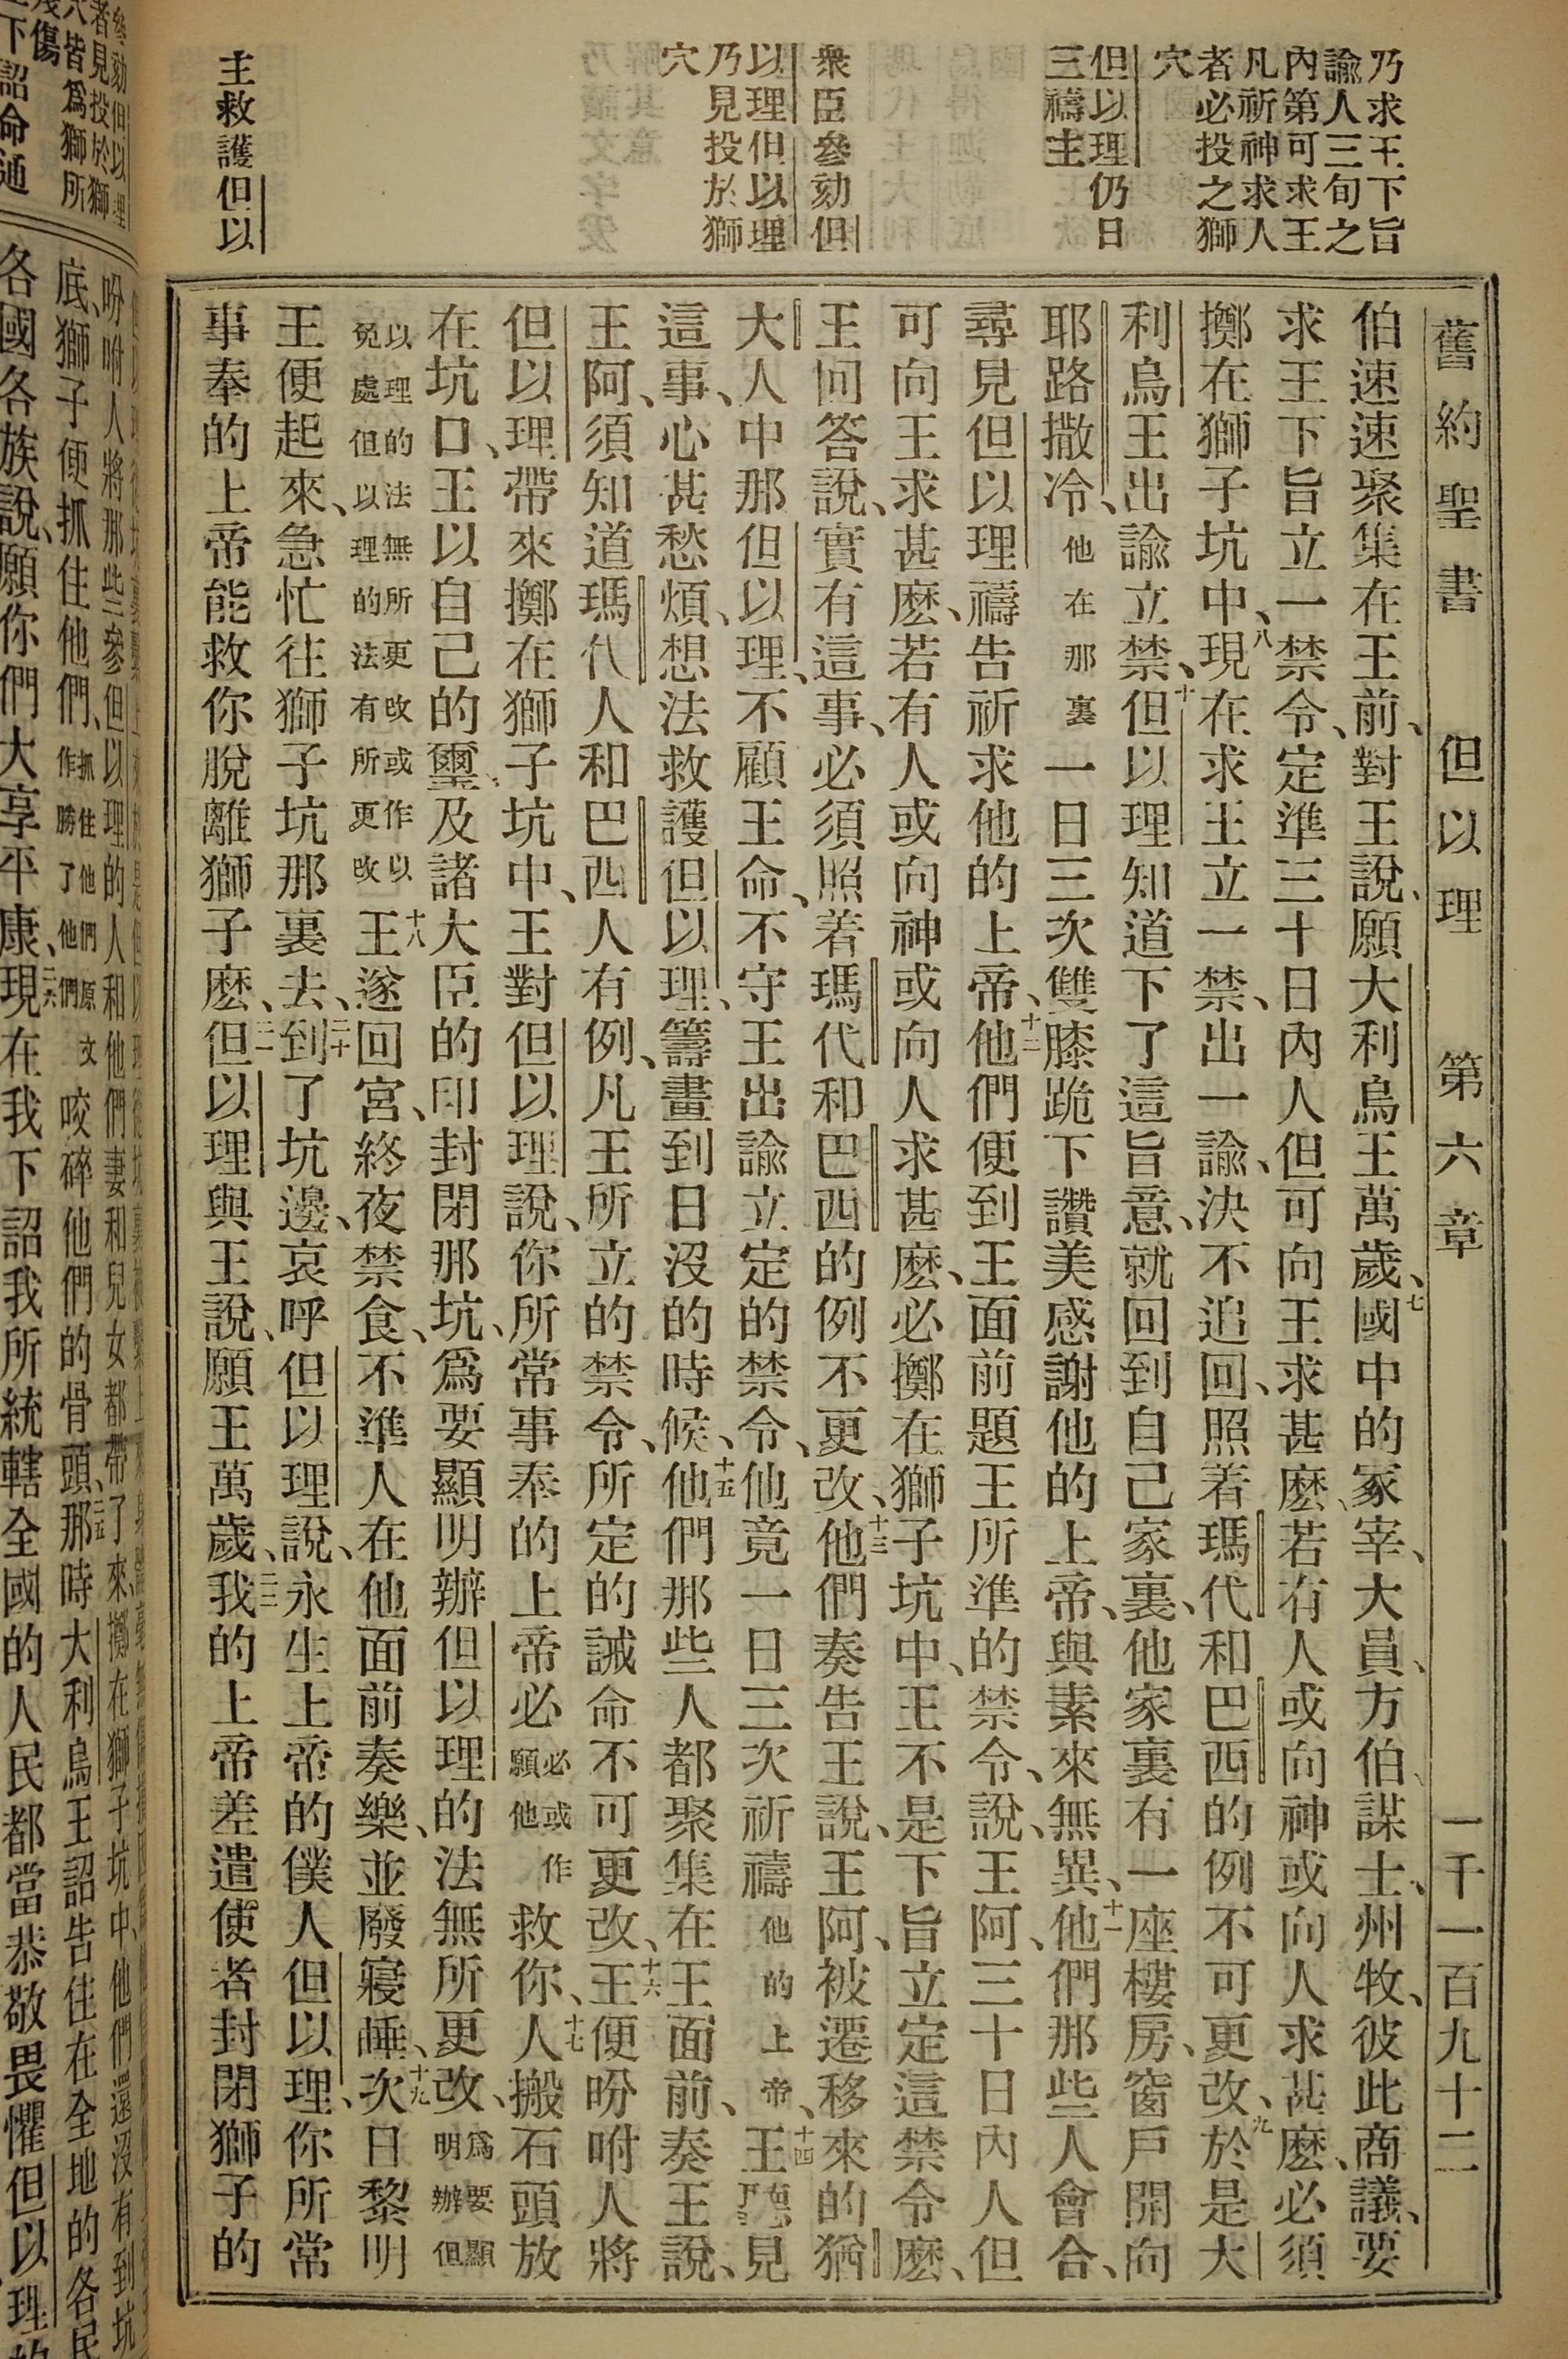 乃求王下旨
諭人三旬之
內第可求王
凡祈神求人
者必投之獅
穴
但以理仍日
三禱主
衆臣參劾但
以理但以理
乃見投於獅
穴
主救護但以
舊約聖書 但以理 第六章 一千一百九十二
伯速速聚集在王前、對王說、願大利烏王萬歲、七國中的冢宰、大員、方伯、謀士、州牧、彼此商議、要
求王下旨立一禁令、定準三十日內人但可向王求甚麽、若有人或向神或向人求甚麽、必須
擲在獅子坑中、八現在求王立一禁、出一諭、決不追回、照着瑪代和巴西的例不可更改、九於是大
利烏王出諭立禁、十但以理知道下了這旨意、就回到自己家裏、他家裏有一座樓房、窗戶開向
耶路撒冷、他在那裏一日三次雙膝跪下讚美感謝他的上帝、與素來無異、十一他們那些人會合、
尋見但以理禱告祈求他的上帝、十二他們便到王面前題王所準的禁令、說、王阿、三十日內人但
可向王求甚麽、若有人或向神或向人求甚麽、必擲在獅子坑中、王不是下旨立定這禁令麽、
王回答說、實有這事、必須照着瑪代和巴西的例不更改、十三他們奏告王說、王阿、被遷移來的猶
大人中那但以理、不顧王命、不守王出諭立定的禁令、他竟一日三次祈禱他的上帝、十四王聽見
這事、心甚愁煩、想法救護但以理、籌畫到日沒的時候、十五他們那些人都聚集在王面前、奏王說、
王阿、須知道瑪代人和巴西人有例、凡王所立的禁令、所定的誡命不可更改、十六王便吩咐人將
但以理帶來擲在獅子坑中、王對但以理說、你所常事奉的上帝必必或作願他救你、十七人搬石頭放
在坑口、王以自己的璽、及諸大臣的印封閉那坑、爲要顯明辦但以理的法無所更改、爲要顯明辦但
以理的法無所更改或作以免處但以理的法有所更改十八王遂回宮、終夜禁食、不準人在他面前奏樂、並廢寢睡、十九次日黎明
王便起來、急忙往獅子坑那裏去、二十到了坑邊、哀呼但以理說、永生上帝的僕人但以理、你所常
事奉的上帝能救你脫離獅子麽、二一但以理與王說、願王萬歲、二二我的上帝差遣使者封閉獅子的
參劾但以理
者見投於獅
穴皆爲獅所
傷
下詔命通
吩咐人將那些參但以理的人和他們妻和兒女都帶了來、擲在獅子坑中、他們還沒有到坑
底、獅子便抓住他們、抓住他們原文作勝了他們咬碎他們的骨頭、二五那時大利烏王詔告住在全地的各民
各國各族說、願你們大享平康、二六現在我下詔我所統轄全國的人民都當恭敬畏懼但以理